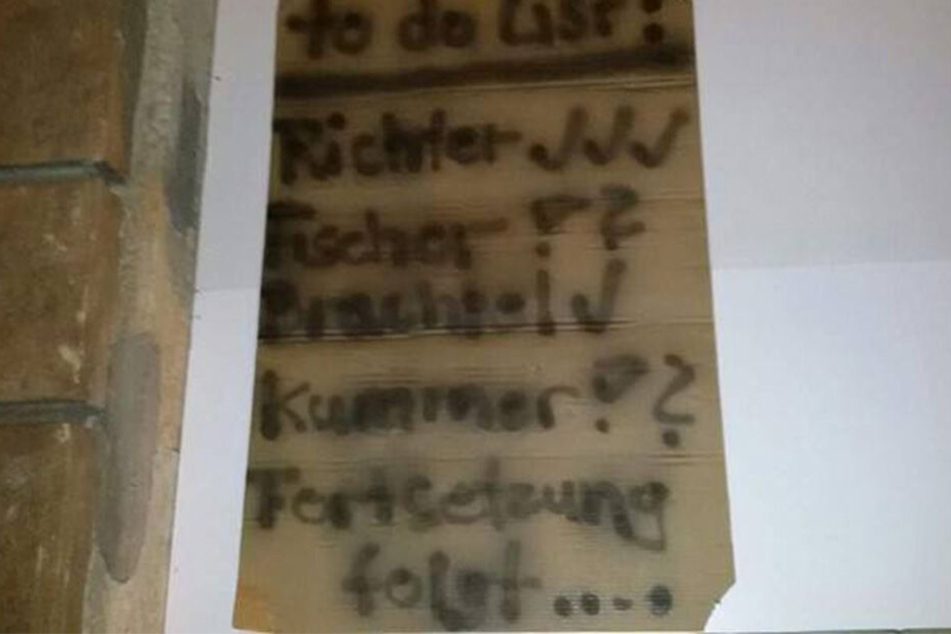 to do List:
Richter ✓✓✓
Fischer ??
Brachtel ✓
Kummer ??
Fortsetzung
folgt.....